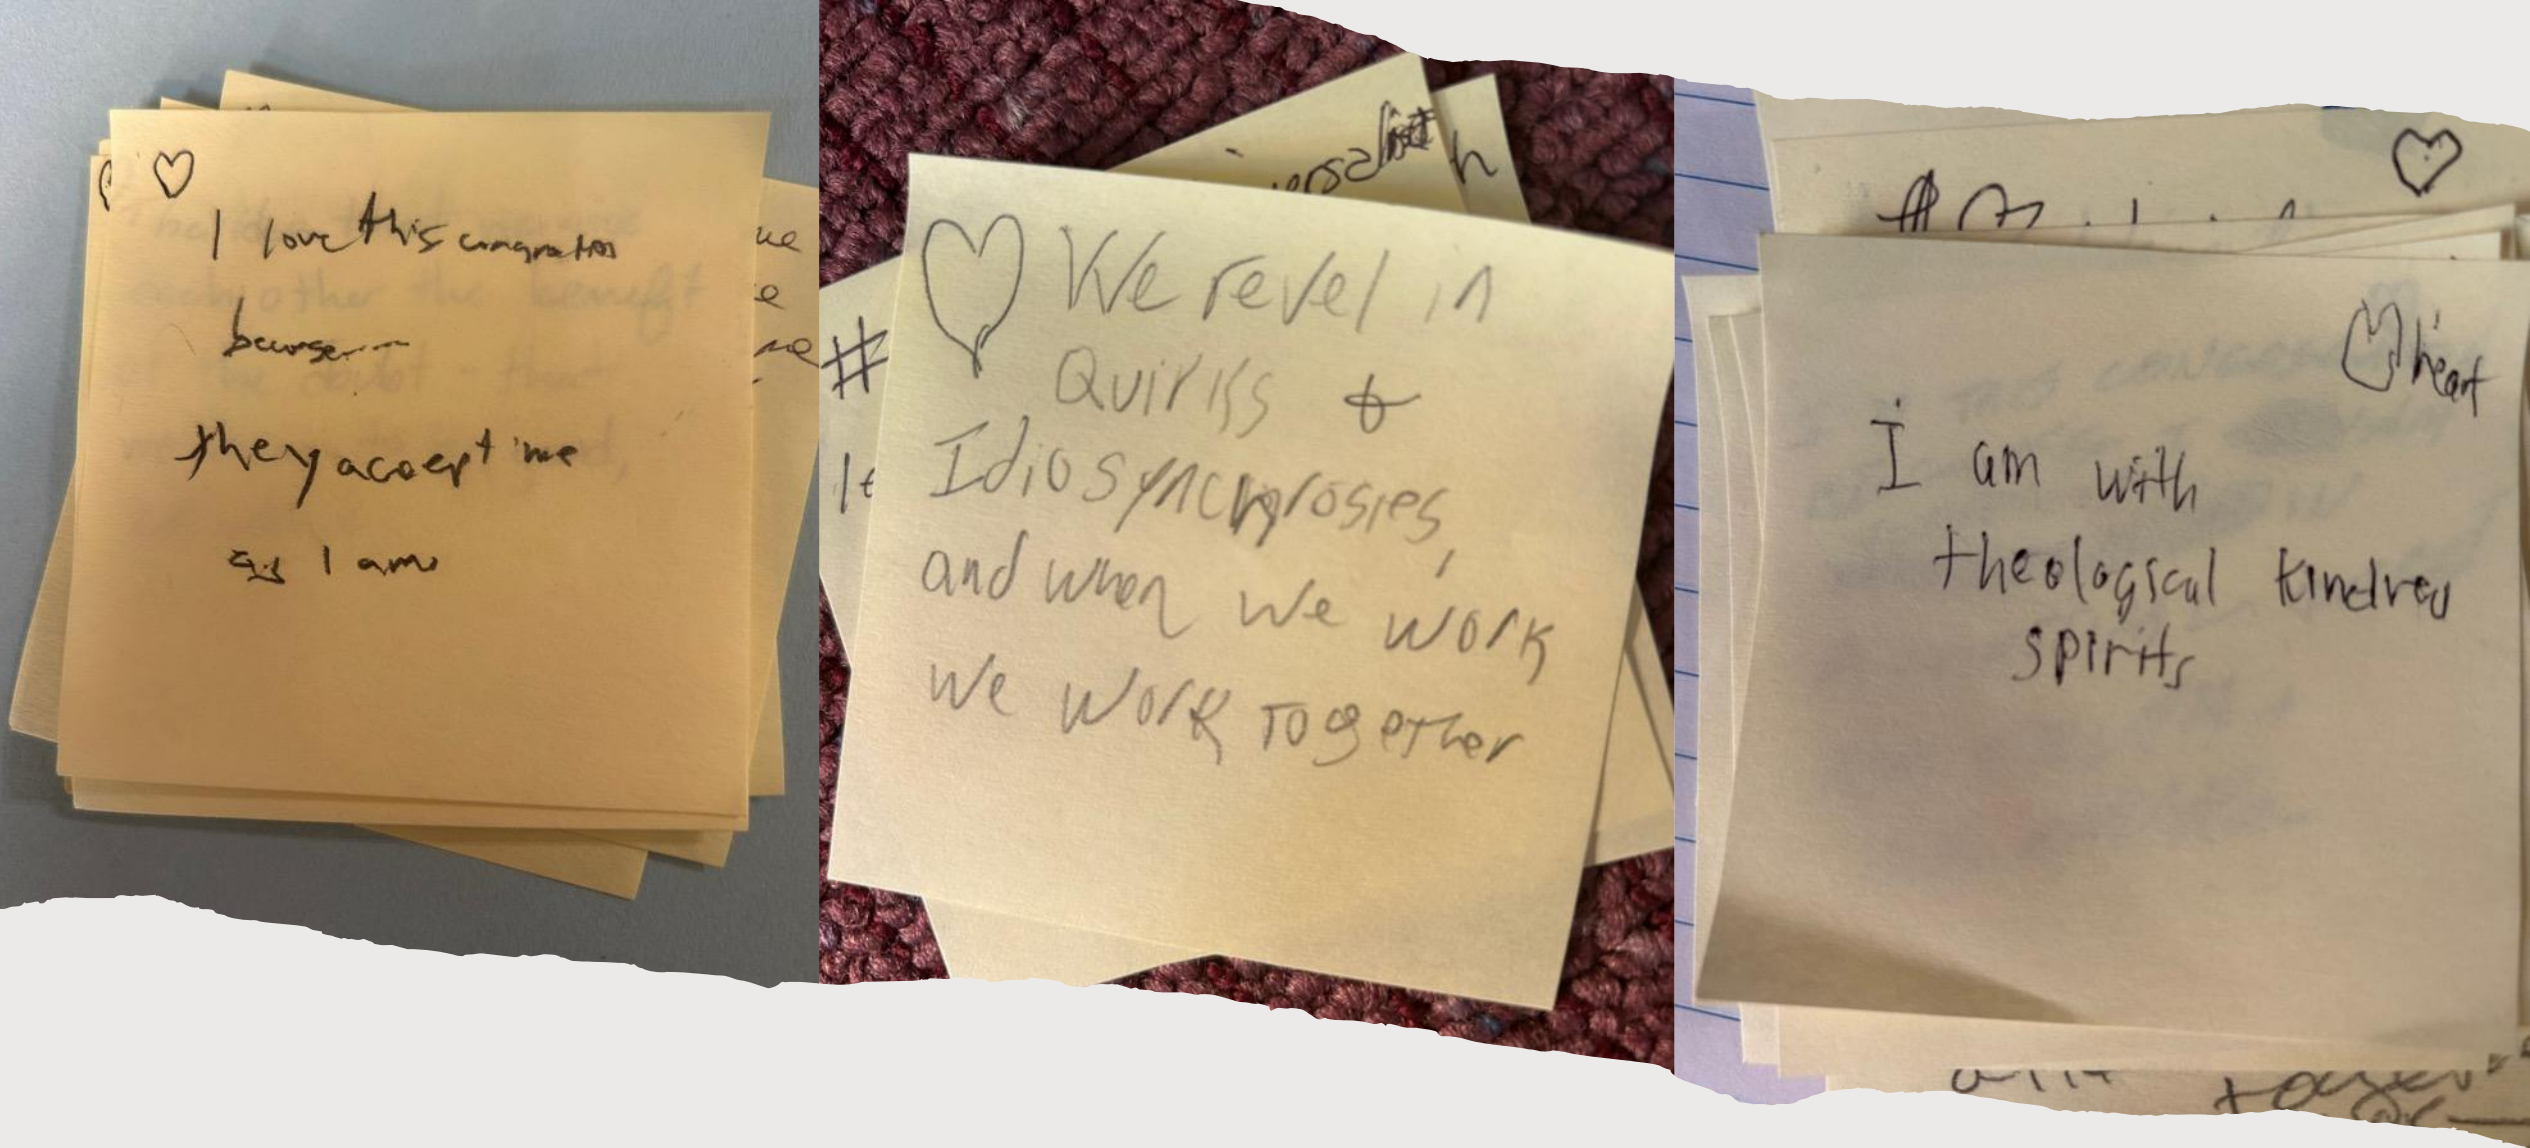 I love this congregation
because---
they accept me
as I am
We revel in
Quirks &
Idiosyncrosies,
and when we work
we work Together
#
ersalist
h
ue
heart
I am with
theological kindred
spirits